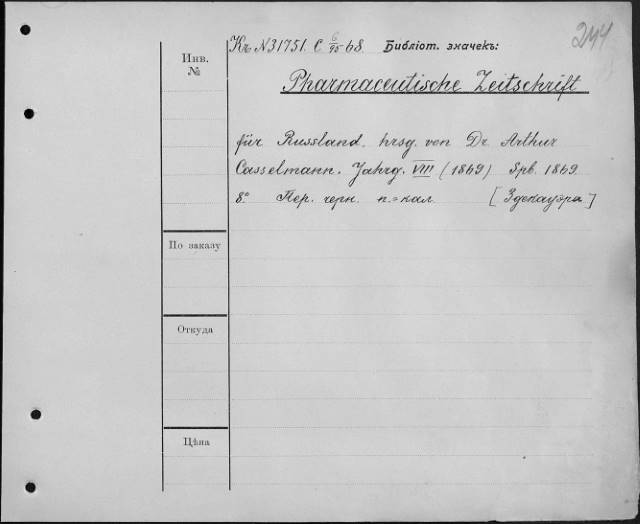 244
Къ N31751. С 6/95 68. Библіот. значекъ:
Инв.
№
Pharmaceutische Zeitschrift
für Russland. hrsg. von Dr. Arthur
Casselmann. Jahrg. VIII (1869) Spb. 1869
8º Пер. черн. п.=кал. [Здекауэра]
По заказу
Откуда
Цѣна